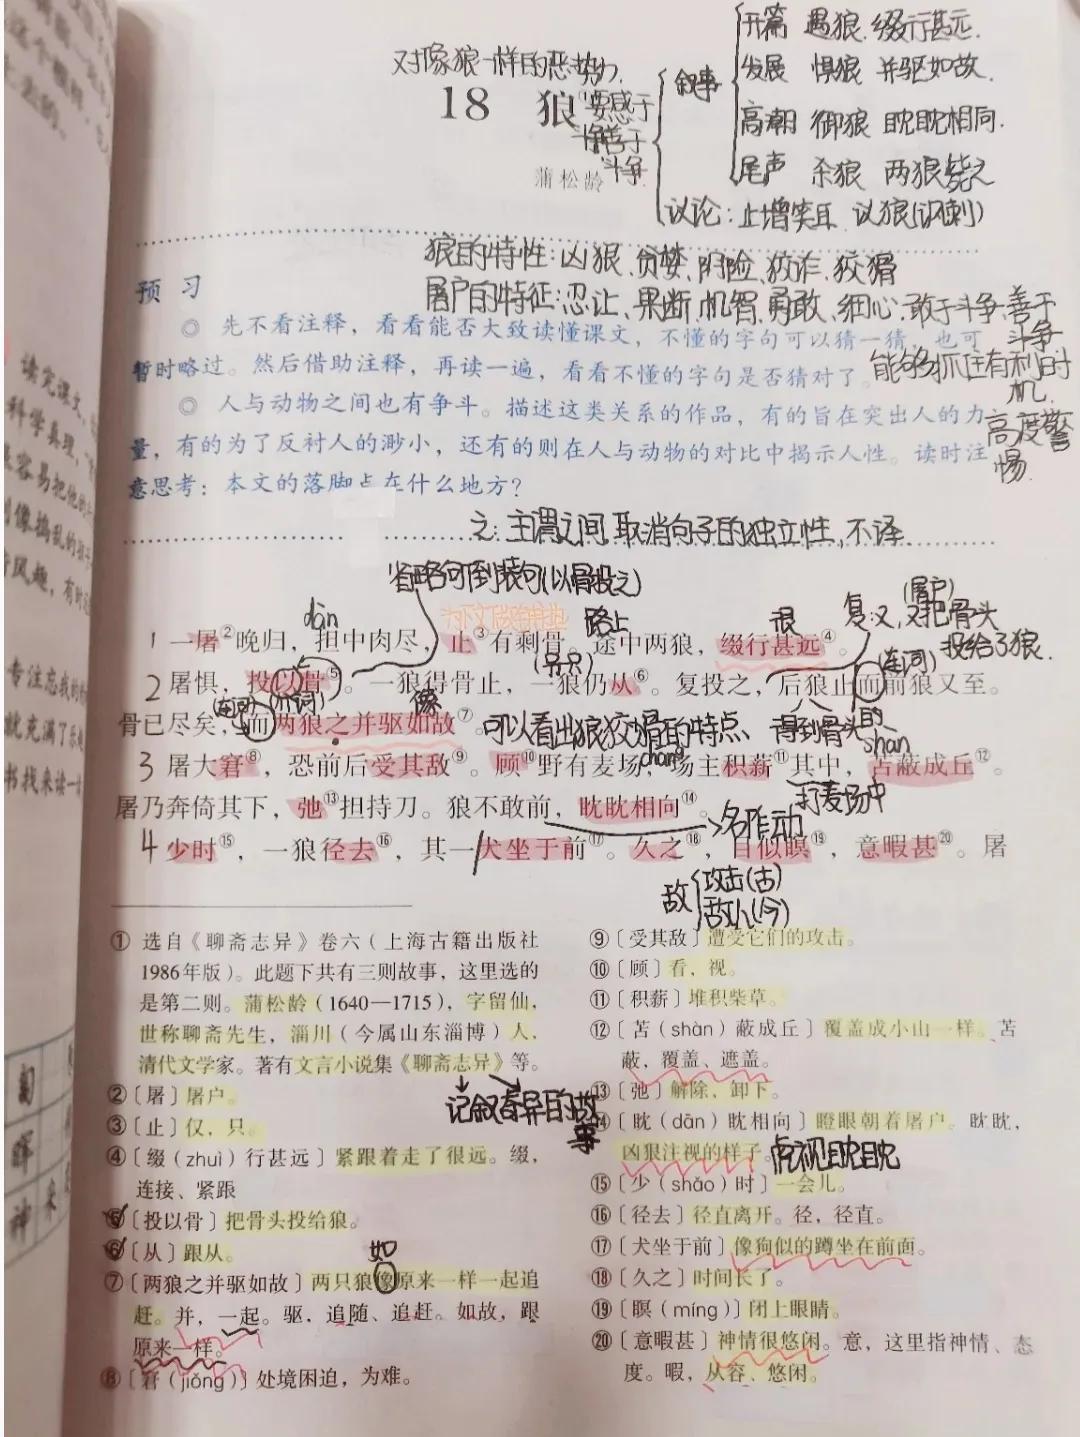 开篇 遇狼.缀行甚远.
对像狼一样的恶势力.
叙事
发展 惧狼 并驱如故.
18 狼①
要感于
斗争善于
斗争.
高潮 御狼 眈眈相同.
尾声 杀狼 两狼毙之
蒲松龄
议论:止增笑耳 议狼(讽刺)
狼的特性:凶狠、贪婪、阴险、狡诈、狡猾
屠户的特征:忍让、果断、机智、勇敢、细心、敢于斗争、善于
斗争
能够抓住有利时
机.
高度警
惕.
预习
◎ 先不看注释，看看能否大致读懂课文，不懂的字句可以猜一猜，也可
暂时略过。然后借助注释，再读一遍，看看不懂的字句是否猜对了。
◎ 人与动物之间也有争斗。描述这类关系的作品，有的旨在突出人的力
量，有的为了反衬人的渺小，还有的则在人与动物的对比中揭示人性。读时注
意思考：本文的落脚点在什么地方？
之:主谓之间,取消句子的独立性,不译.
省略句倒装句(以骨投之)
dān
路上
很
复:又,又把骨头
(屠户)
投给了狼.
1 一屠②晚归，担中肉尽，止③有剩骨。途中两狼，缀行甚远④。
(另只)
(连词)
2 屠惧，投以骨⑤。一狼得骨止，一狼仍从⑥。复投之，后狼止而前狼又至。
(连词)
(介词)
像
骨已尽矣，而两狼之并驱如故⑦。
可以看出狼狡猾的特点
得到骨头的
shan
chang
3 屠大窘⑧，恐前后受其敌⑨。顾⑩野有麦场，场主积薪⑪其中，苫蔽成丘⑫。
打麦场中
屠乃奔倚其下，弛⑬担持刀。狼不敢前，眈眈相向⑭。
名作动
4 少时⑮，一狼径去⑯，其一犬坐于前⑰。久之⑱，目似瞑⑲，意暇甚⑳。屠
敌{攻击(古)
敌人(今)
① 选自《聊斋志异》卷六（上海古籍出版社
1986年版）。此题下共有三则故事，这里选的
是第二则。蒲松龄（1640—1715），字留仙，
世称聊斋先生，淄川（今属山东淄博）人，
清代文学家。著有文言小说集《聊斋志异》等。
记叙奇异的故
事
②〔屠〕屠户。
③〔止〕仅，只。
④〔缀（zhuì）行甚远〕紧跟着走了很远。缀，
连接、紧跟
⑤〔投以骨〕把骨头投给狼。
⑥〔从〕跟从。
如
⑦〔两狼之并驱如故〕两只狼像原来一样一起追
赶。并，一起。驱，追随、追赶。如故，跟
原来一样。
⑧〔窘（jiǒng）〕处境困迫，为难。
⑨〔受其敌〕遭受它们的攻击。
⑩〔顾〕看，视。
⑪〔积薪〕堆积柴草。
⑫〔苫（shàn）蔽成丘〕覆盖成小山一样。苫
蔽，覆盖、遮盖。
⑬〔弛〕解除，卸下。
⑭〔眈（dān）眈相向〕瞪眼朝着屠户。眈眈，
凶狠注视的样子。
虎视眈眈
⑮〔少（shǎo）时〕一会儿。
⑯〔径去〕径直离开。径，径直。
⑰〔犬坐于前〕像狗似的蹲坐在前面。
⑱〔久之〕时间长了。
⑲〔瞑（míng）〕闭上眼睛。
⑳〔意暇甚〕神情很悠闲。意，这里指神情、态
度。暇，从容、悠闲。
读完课文，
科学真理，
容易把他的
像捣乱的孩子
风趣，有时
专注忘我的
就充满了
书找来读一
晖
神
来